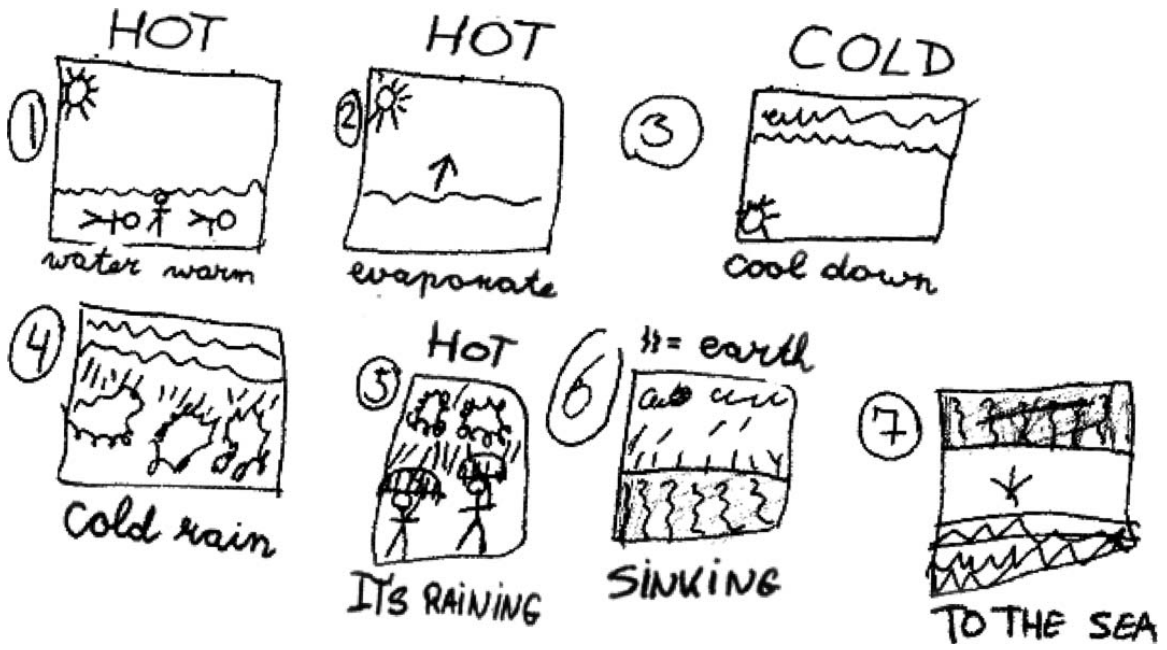 HOT
1
water warm
HOT
2
evaporate
COLD
3
cool down
4
cold rain
HOT
5
IT'S RAINING
6
= earth
SINKING
7
TO THE SEA